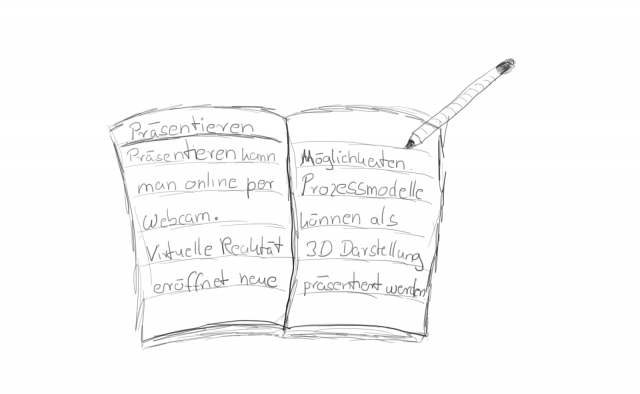 Präsentieren
Präsentieren kann
man online per
Webcam.
Virtuelle Realität
eröffnet neue
Möglichkeiten.
Prozessmodelle
können als
3D Darstellung
präsentiert werden